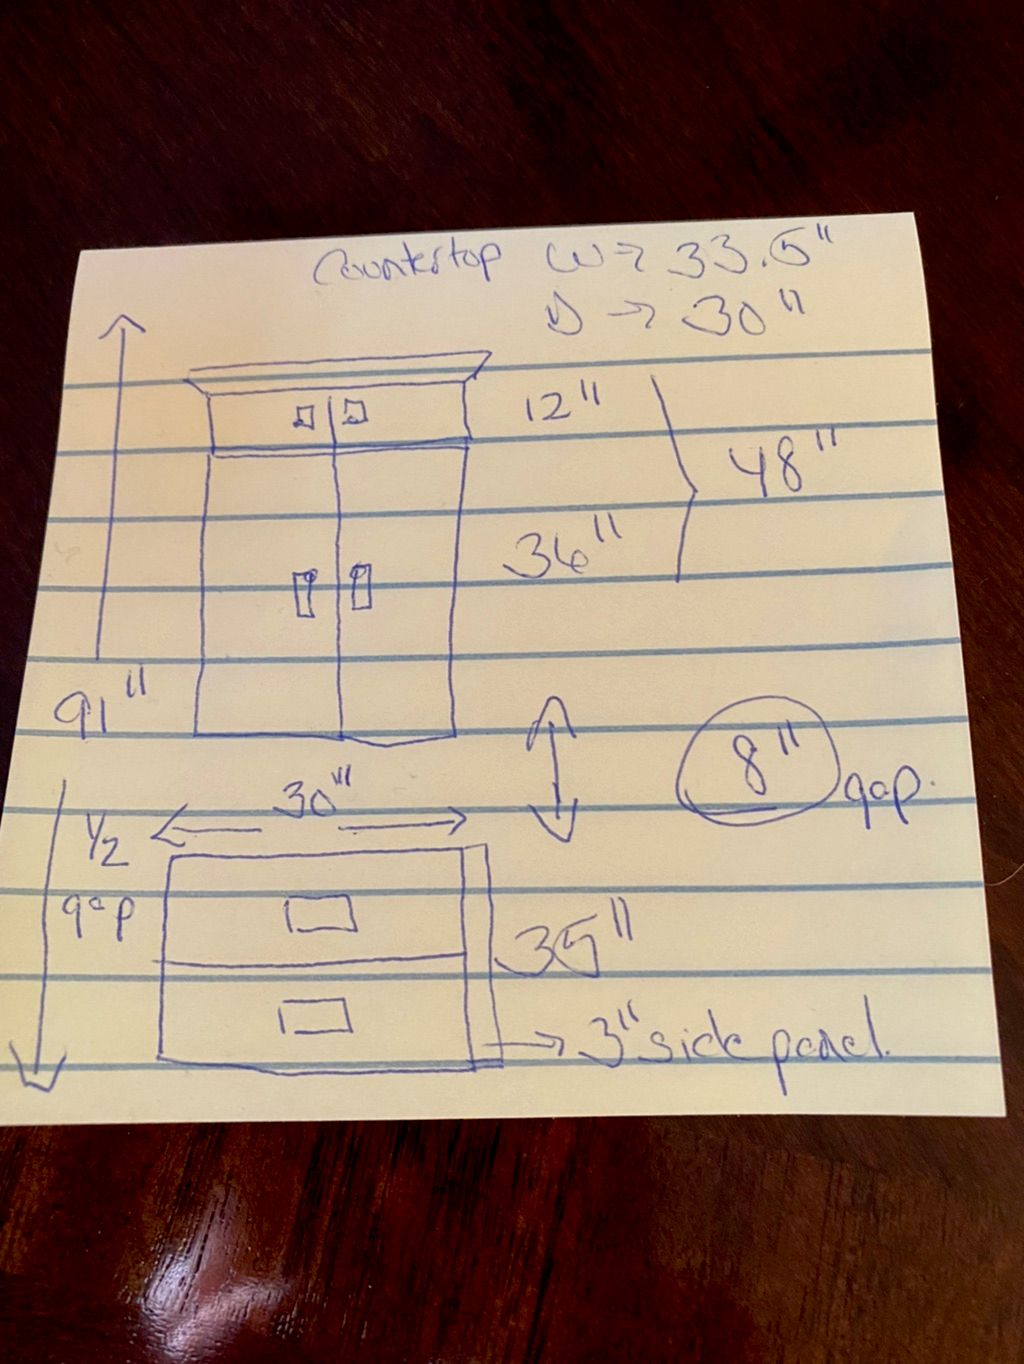 Countertop W → 33.5"
D → 30"
12"
48"
36"
91"
8" gap.
30"
1/2
gap
35"
→ 3" side panel.